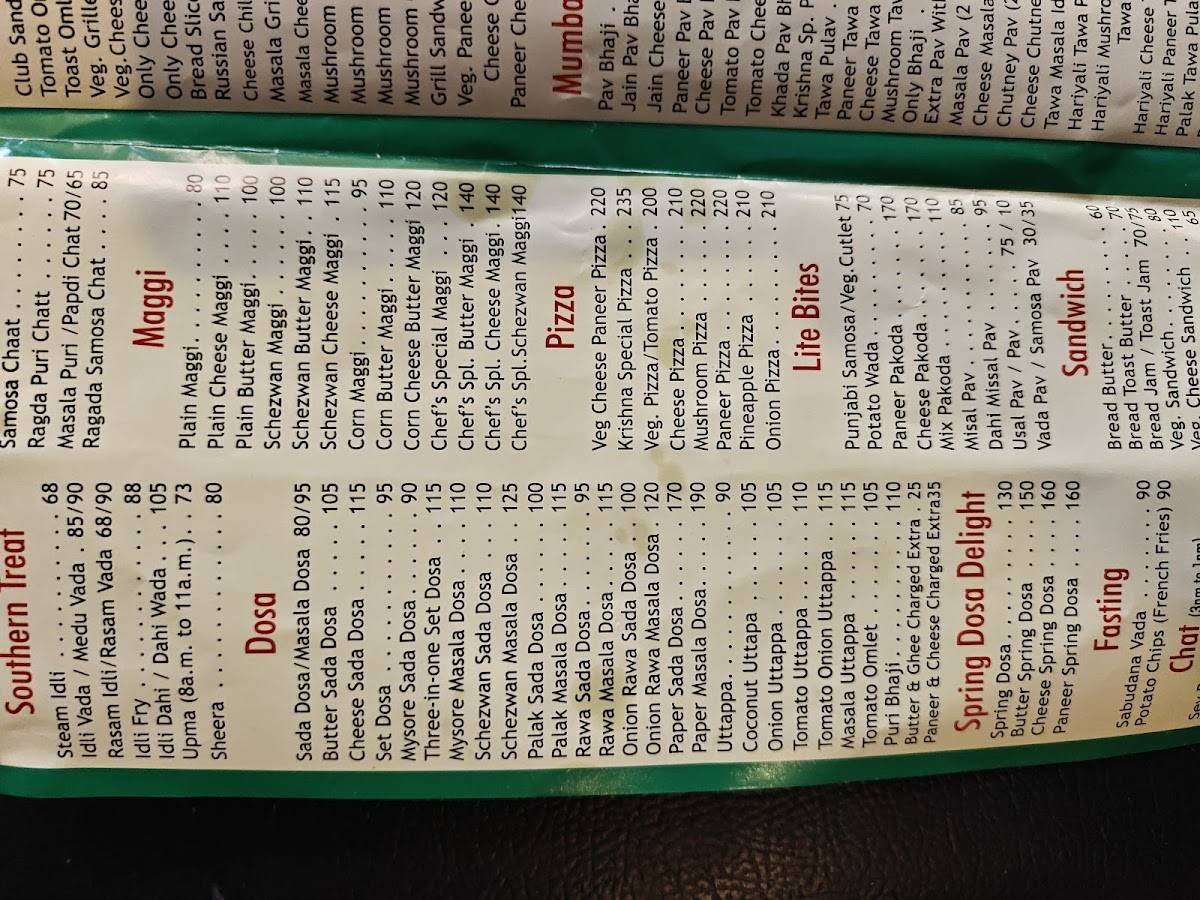 Southern Treat
Steam Idli . . . . . . . . . . 68
Idli Vada / Medu Vada . 85/90
Rasam Idli/Rasam Vada 68/90
Idli Fry . . . . . . . . . . . . 88
Idli Dahi / Dahi Wada . . . 105
Upma (8a.m. to 11a.m.) . . 73
Sheera . . . . . . . . . . . . 80
Dosa
Sada Dosa/Masala Dosa 80/95
Butter Sada Dosa . . . . . 105
Cheese Sada Dosa . . . . . 115
Set Dosa . . . . . . . . . . 95
Mysore Sada Dosa . . . . . 90
Three-in-one Set Dosa . . . 115
Mysore Masala Dosa . . . . 110
Schezwan Sada Dosa . . . . 110
Schezwan Masala Dosa . . . 125
Palak Sada Dosa . . . . . . 100
Palak Masala Dosa . . . . . 115
Rawa Sada Dosa . . . . . . 95
Rawa Masala Dosa . . . . . 115
Onion Rawa Sada Dosa . . . 100
Onion Rawa Masala Dosa . 120
Paper Sada Dosa . . . . . . 170
Paper Masala Dosa . . . . . 190
Uttappa . . . . . . . . . . . 90
Coconut Uttapa . . . . . . 105
Onion Uttappa . . . . . . . 105
Tomato Uttappa . . . . . . 110
Tomato Onion Uttappa . . . 115
Masala Uttappa . . . . . . 115
Tomato Omlet . . . . . . . 105
Puri Bhaji . . . . . . . . . 110
Butter & Ghee Charged Extra . 25
Paneer & Cheese Charged Extra35
Spring Dosa Delight
Spring Dosa . . . . . . . . 130
Butter Spring Dosa . . . . 150
Cheese Spring Dosa . . . . 160
Paneer Spring Dosa . . . . 160
Fasting
Sabudana Vada . . . . . . . 90
Potato Chips (French Fries) 90
Chat
Samosa Chaat . . . . . . . . 75
Ragda Puri Chatt . . . . . . 75
Masala Puri / Papdi Chat 70/65
Ragada Samosa Chat . . . . 85
Maggi
Plain Maggi . . . . . . . . . 80
Plain Cheese Maggi . . . . 110
Plain Butter Maggi . . . . . 100
Schezwan Maggi . . . . . . 100
Schezwan Butter Maggi . . 110
Schezwan Cheese Maggi . 115
Corn Maggi . . . . . . . . . 95
Corn Butter Maggi . . . . . 110
Corn Cheese Butter Maggi 120
Chef's Special Maggi . . . 120
Chef's Spl. Butter Maggi . 140
Chef's Spl. Cheese Maggi . 140
Chef's Spl.Schezwan Maggi140
Pizza
Veg Cheese Paneer Pizza . 220
Krishna Special Pizza . . . 235
Veg. Pizza/Tomato Pizza . 200
Cheese Pizza . . . . . . . . 210
Mushroom Pizza . . . . . . 220
Paneer Pizza . . . . . . . . 220
Pineapple Pizza . . . . . . 210
Onion Pizza . . . . . . . . . 210
Lite Bites
Punjabi Samosa/Veg.Cutlet 75
Potato Wada . . . . . . . . 70
Paneer Pakoda . . . . . . . 170
Cheese Pakoda . . . . . . . 170
Mix Pakoda . . . . . . . . . 110
Misal Pav . . . . . . . . . . 85
Dahi Missal Pav . . . . . . 95
Usal Pav / Pav . . . . . 75 / 10
Vada Pav / Samosa Pav 30/35
Sandwich
Bread Butter . . . . . . . . 60
Bread Toast Butter . . . . . 70
Bread Jam / Toast Jam 70/75
Veg. Sandwich . . . . . . . 80
Veg. Cheese Sandwich
Club Sand
Veg. Grille
Veg.Chees
Only Chee
Only Chee
Bread Slice
Russian Sa
Cheese Chil
Masala Gri
Masala Chee
Mushroom
Mushroom
Mushroom
Mushroom
Grill Sandw
Veg. Panee
Cheese
Paneer Che
Mumba
Pav Bhaji .
Jain Pav Bha
Jain Cheese
Paneer Pav
Cheese Pav
Tomato Pav
Tomato Chee
Khada Pav Bh
Krishna Sp. P
Tawa Pulav .
Paneer Tawa
Cheese Tawa
Mushroom Taw
Only Bhaji .
Extra Pav With
Masala Pav (2
Cheese Masala
Chutney Pav (2
Cheese Chutne
Tawa Masala Id
Hariyali Tawa P
Hariyali Mushro
Tawa
Hariyali Cheese
Hariyali Paneer T
Palak Tawa Pula